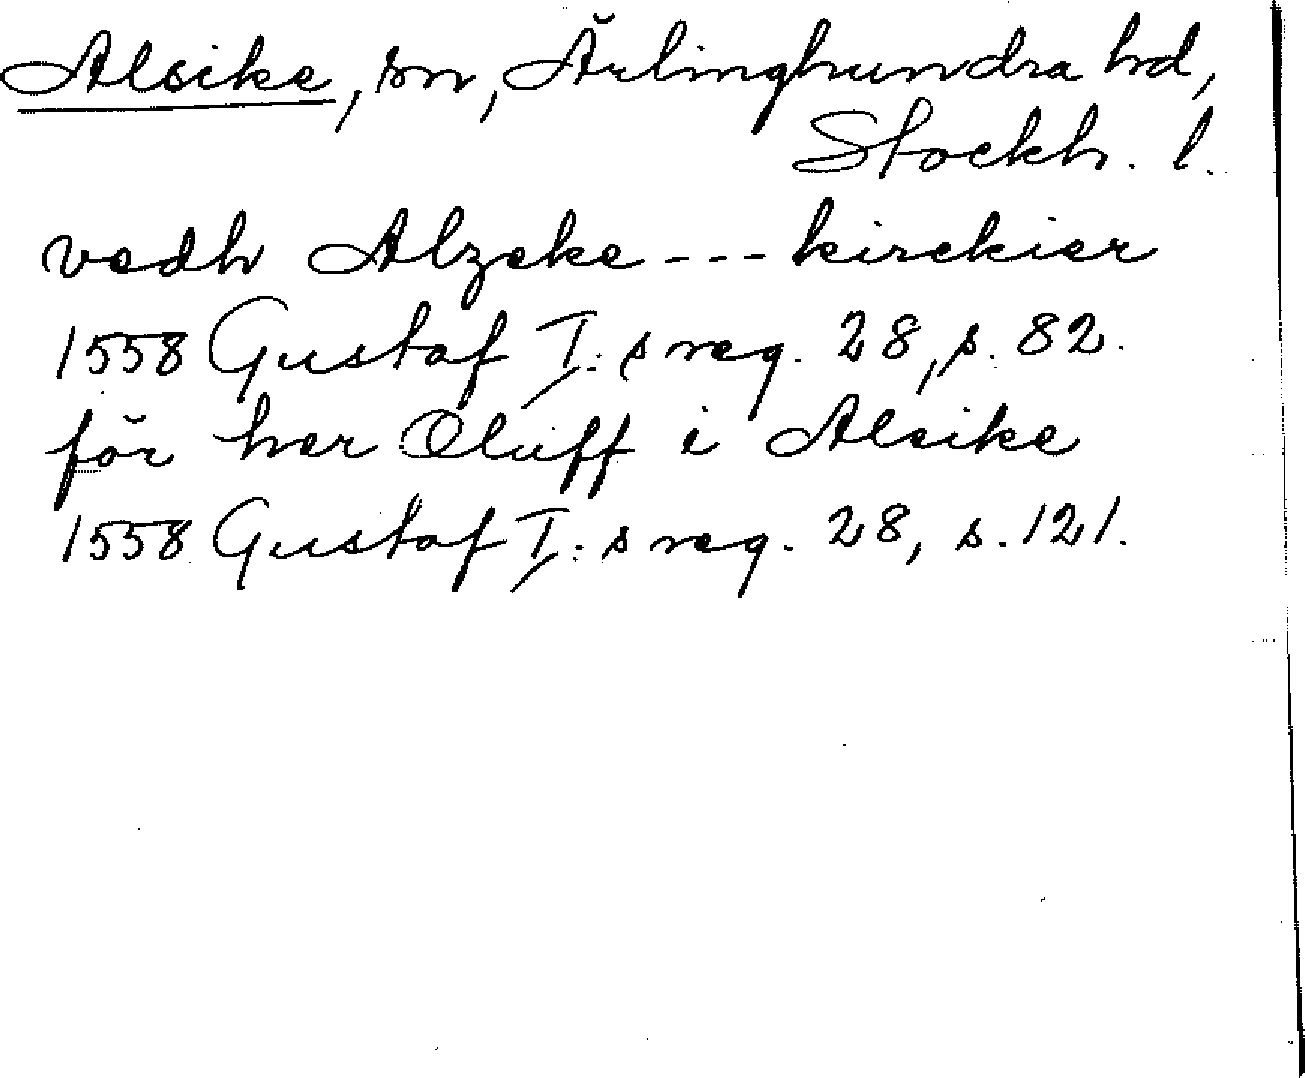 Alsike, sn, Ärlinghundra hd,
Stockh. l.
vedh Alzeke --- kirckier
1558 Gustaf I:s reg. 28, s. 82.
för her Oluff i Alsike
1558 Gustaf I:s reg. 28, s. 121.